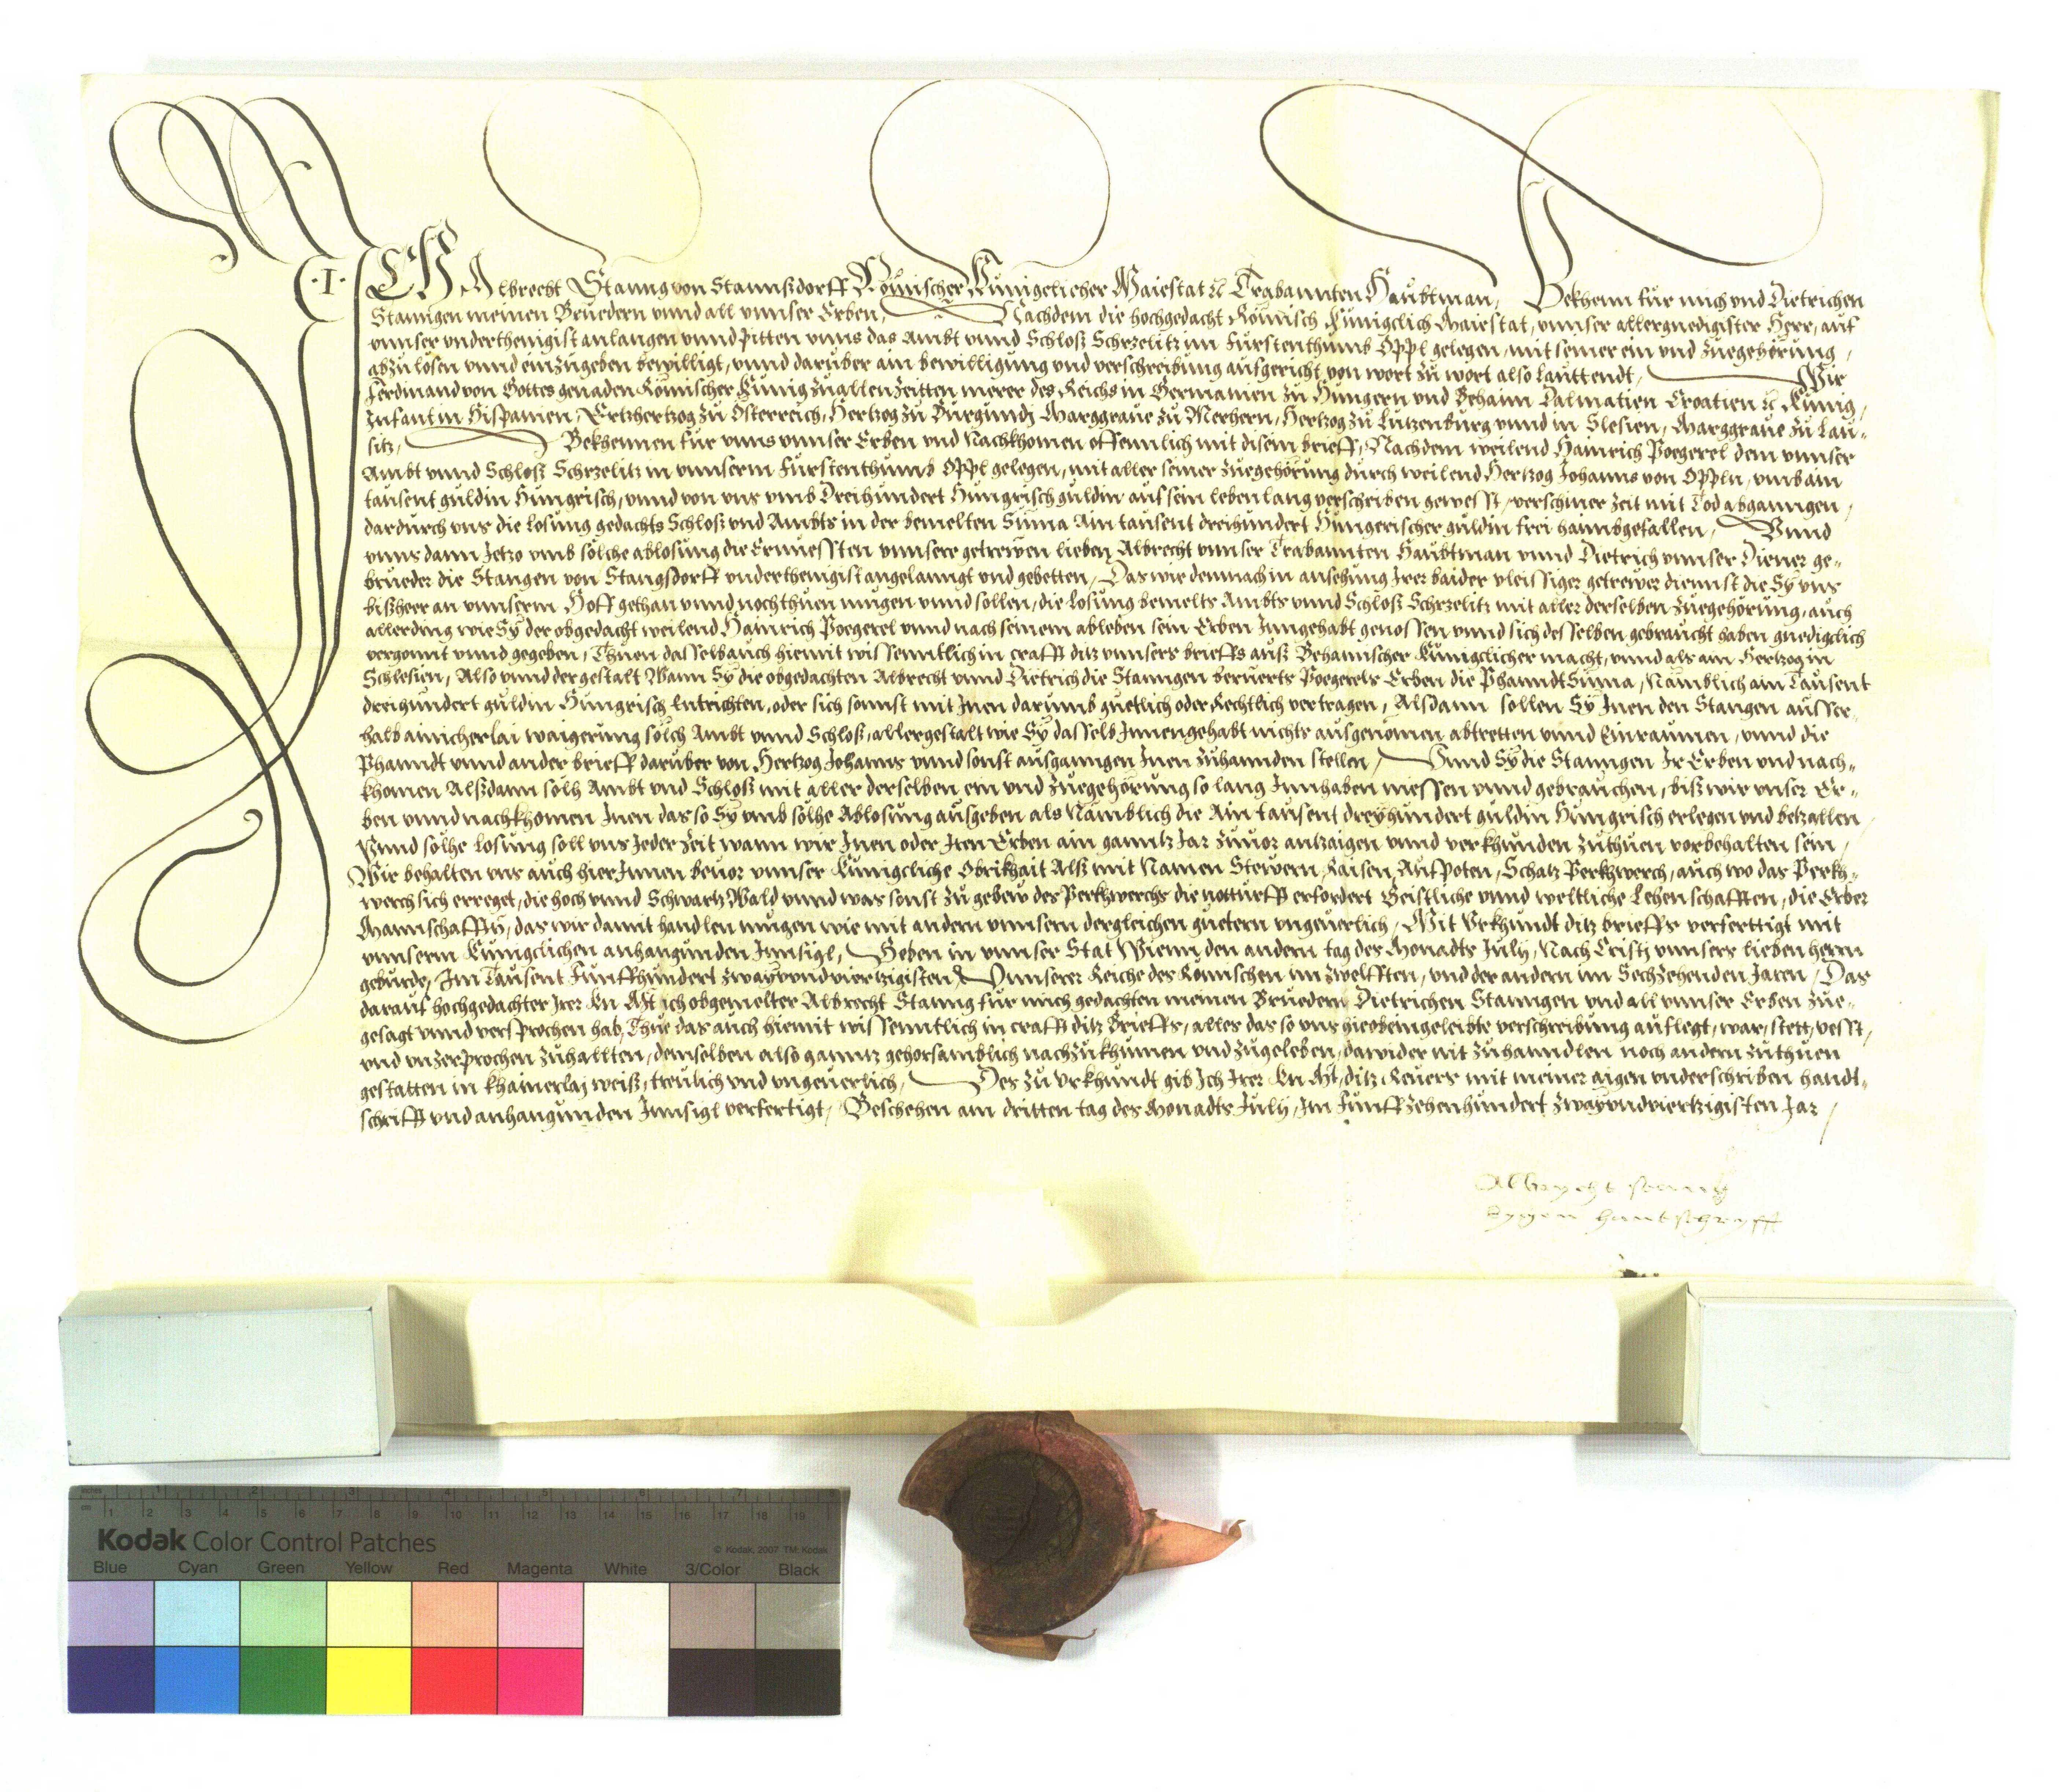 ·I· ICH Albrecht Stanng von Stannßdorff Römischer Künigclicher Maiestat ꝛc Trabannten Haubtman, Bekhenn für mich vnd Dietrichen
Stanngen meinen Brüedern vnnd all vnnser Erben, Nachdem die hochgedacht Römisch Künigclich Maiestat, vnnser allergnedigister Herr, auf
vnnser vnderthenigist anlangen vnnd Pitten vnns das Ambt vnnd Schloß Schrzelitz im Fürstenthumb Oppl gelegen, mit seiner ein vnd Zuegehörung,
abzulösen vnnd einzugeben bewilligt, vnnd darüber ain bewilligung vnd verschreibung aufgericht von wort zu wort also lauttendt, Wir
Ferdinand von Gottes genaden Römischer Künig zuallen Zeitten merer des Reichs in Germanien zu Hungern vnd Behaim Dalmatien Croatien ꝛc Künig,
Infannt in Hispanien, Ertzhertzog zu Osterreich, Hertzog zu Burgundj Marggraue zu Merhern, Hertzog zu Lutzenburg vnnd in Slesien, Marggraue zu Lau-
sitz, Bekhennen für vnns vnnser Erben vnd Nachkhomen offennlich mit disem brieff, Nachdem weilend Hainrich Poegerel dem vnnser
Ambt vnnd Schloß Schrzelitz in vnnserm Fürstenthumb Oppl gelegen, mit aller seiner Zuegehörung durch weilend Hertzog Johanns von Oppln, vmb ain
tausent guldin Hungrisch, vnnd von vns vmb Dreihundert Hungrisch guldin auf sein leben lang verschriben gewesst, verschiner Zeit mit Tod abganngen,
dardurch vns die losung gedachts Schloß vnd Ambts in der bemelten Suma Ain tausent dreihundert Hungerischer guldin frei haimbgefallen, Vnnd
vnns dann Jetzo vmb solche ablosung die Ernuessten vnnsere getrewen lieben Albrecht vnnser Trabannten Haubtman vnnd Dietrich vnnser Diener ge-
brueder die Stangen von Stangsdorff vnderthenigist angelanngt vnd gebetten, Das wir demnach in ansehung Irer baider vleissiger getrewer diennst die Sy vns
bißheer an vnnserm Hoff gethan vnnd noch thuen mugen vnnd sollen, die losung bemelts Ambts vnnd Schloß Schrzelitz mit aller derselben Zuegehörung, auch
allerding wie Sy der obgedacht weilend Hainrich Poegerel vnnd nach seinem ableben sein Erben Inngehabt genossen vnnd sich desselben gebraucht haben gnedigclich
vergonnt vnnd gegeben, Thuen dasselb auch hiemit wissenntlich in crafft ditz vnnsers brieffs auß Behamischer Künigclicher macht, vnnd als ain Hertzog in
Schlesien, Also vnnd der gestalt Wann Sy die obgedachten Albrecht vnnd Dietrich die Stanngen beruerts Poegerels Erben die Phanndt Suma, Namblich ain Tausent
dreihundert guldin Hungrisch Entrichten, oder sich sonnst mit Inen darumb guetlich oder Rechtlich vertragen, Alsdann sollen Sy Inen den Stangen ausser-
halb ainicherlai waigerung solch Ambt vnnd Schloß, allergestalt wie Sy dasselb Innengehabt nichts ausgenomen abtretten vnnd Einraumen, vnnd die
Phanndt vnnd ander brieff daruber von Hertzog Johanns vnnd sonst ausganngen Inen zuhannden stellen, Vnnd Sy die Stanngen Ir Erben vnd nach-
khomen Alßdann solh Ambt vnd Schloß mit aller derselben ein vnd Zuegehörung so lang Innhaben niessen vnnd gebrauchen, biß wir vnser Er-
ben vnnd nachkhomen Inen das so Sy vmb solhe Ablosung ausgeben als Namblich die Ain tausent dreyhundert guldin Hungrisch erlegen vnd betzallen,
Vnnd solhe losung soll vns Jeder Zeit wann wir Inen oder Iren Erben ain ganntz Jar zuuor antzaigen vnnd verkhunden zuthuen vorbehalten sein,
Wir behalten vns auch hierInnen beuor vnnser Künigcliche Obrikhait Alß mit Namen Stewern, Raisen, Aufpoten, Schatz Perkhwerch, auch wo das Perkh-
werch sich erreget, die hoch vnnd Schwartz Wald vnnd was sonst zu gebew des Perkhwerchs die notturfft erfordert Geistliche vnnd weltliche Lehenschafften, die Erber
Mannschafftn, das wir damit handlen mugen wie mit andern vnnsern dergleichen guetern vngeuerlich, Mit Vrkhundt ditz brieffs verferttigt mit
vnnserm Künigclichen anhangunden Innsigl, Geben in vnnser Stat Wienn den andern tag des Monadts Julij, Nach Cristj vnnsers lieben herrn
geburde, Im Tausent Funffhundert zwayvnndviertzigisten, Vnnserer Reiche des Römischen im zwelfften, vnd der andern im Sechzehenden Jaren, Das
darauf hochgedachter Irer Kn Mt ich obgemelter Albrecht Stanng für mich gedachten meinen Bruedern Dietrichen Stanngen vnd all vnnser Erben zue-
gesagt vnnd versprochen hab, Thue das auch hiemit wissenntlich in crafft ditz brieffs, alles das so vns hieobeingeleibte verschreibung auflegt, war, stett, vesst,
vnd vnzerprochen zuhallten, demselben also ganntz gehorsamblich nachzukhumen vnd zugeleben, dawider nit zuhanndlen noch andern zuthuen
gestatten in khainerlaj weiß, treulich vnd vngeuerlich, Des zu vrkhundt gib Ich Irer Kn Mt, ditz Reuers mit meiner aigen vnderschriben handt-
schrifft vnd anhangunden Innsigl verfertigt, Beschehen am dritten tag des Monadts Julij, Im Funffzehenhundert zwayvndviertzigisten Jar,
Albrycht stanng
eygen hantschryfft
inches 1 2 3 4 5 6 7
cm 1 2 3 4 5 6 7 8 9 10 11 12 13 14 15 16 17 18 19
Kodak Color Control Patches
© Kodak, 2007 TM: Kodak
Blue Cyan Green Yellow Red Magenta White 3/Color Black